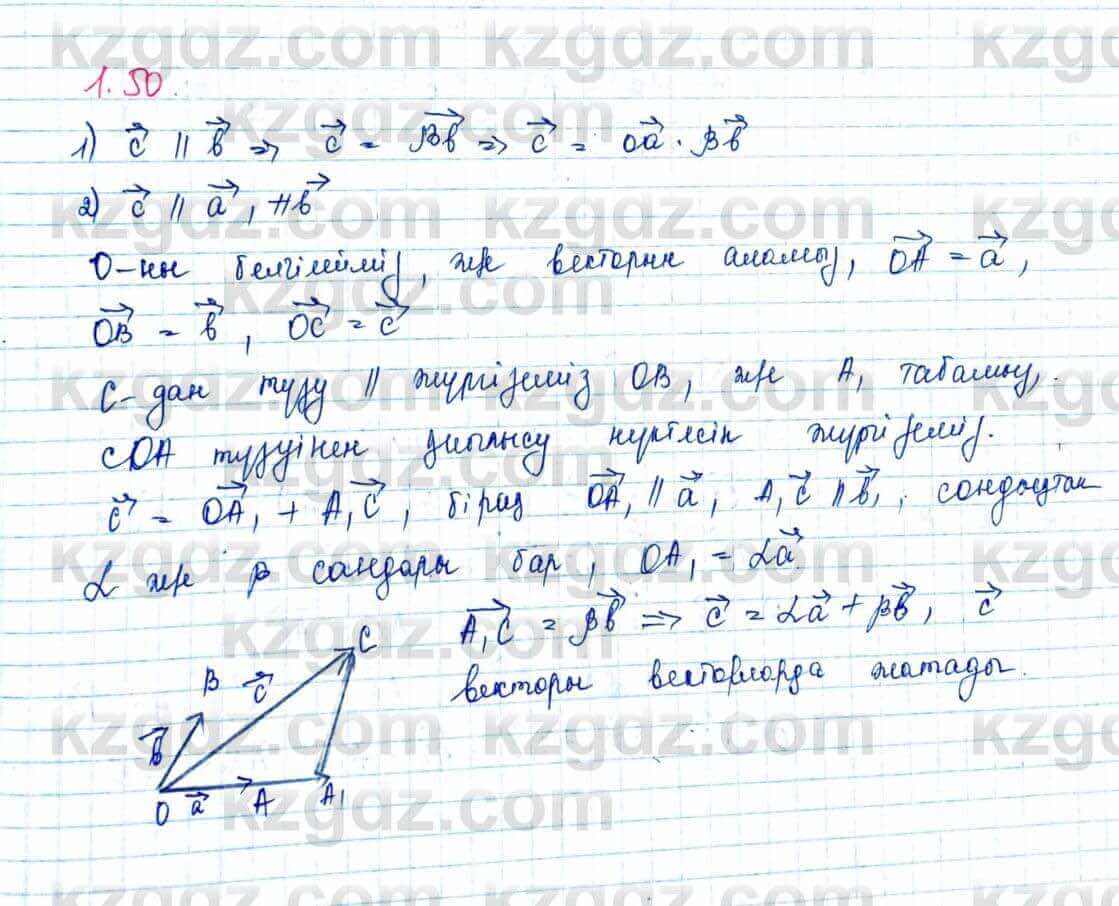 kzgdz.com
1.50.
1) c⃗ || b⃗ => c⃗ = βb⃗ => c⃗ = 0a⃗ · βb⃗
2) c⃗ || a⃗, ∦ b⃗
O-ны белгілейміз, және векторын аламыз, OA⃗ = a⃗,
OB⃗ = b⃗, OC⃗ = c⃗
C-дан түзу || жүргіземіз OB, және A₁ табамыз,
COA түзуінен қиылысу нүктесін жүргіземіз.
c⃗ = OA₁⃗ + A₁C⃗, бірақ OA₁⃗ || a⃗, A₁C⃗ || b⃗, сондықтан
α және β сандары бар, OA₁ = αa⃗
A₁C⃗ = βb⃗ => c⃗ = αa⃗ + βb⃗, c⃗
векторы векторларда жатады.
C
B c⃗
b⃗
O a⃗ A A₁